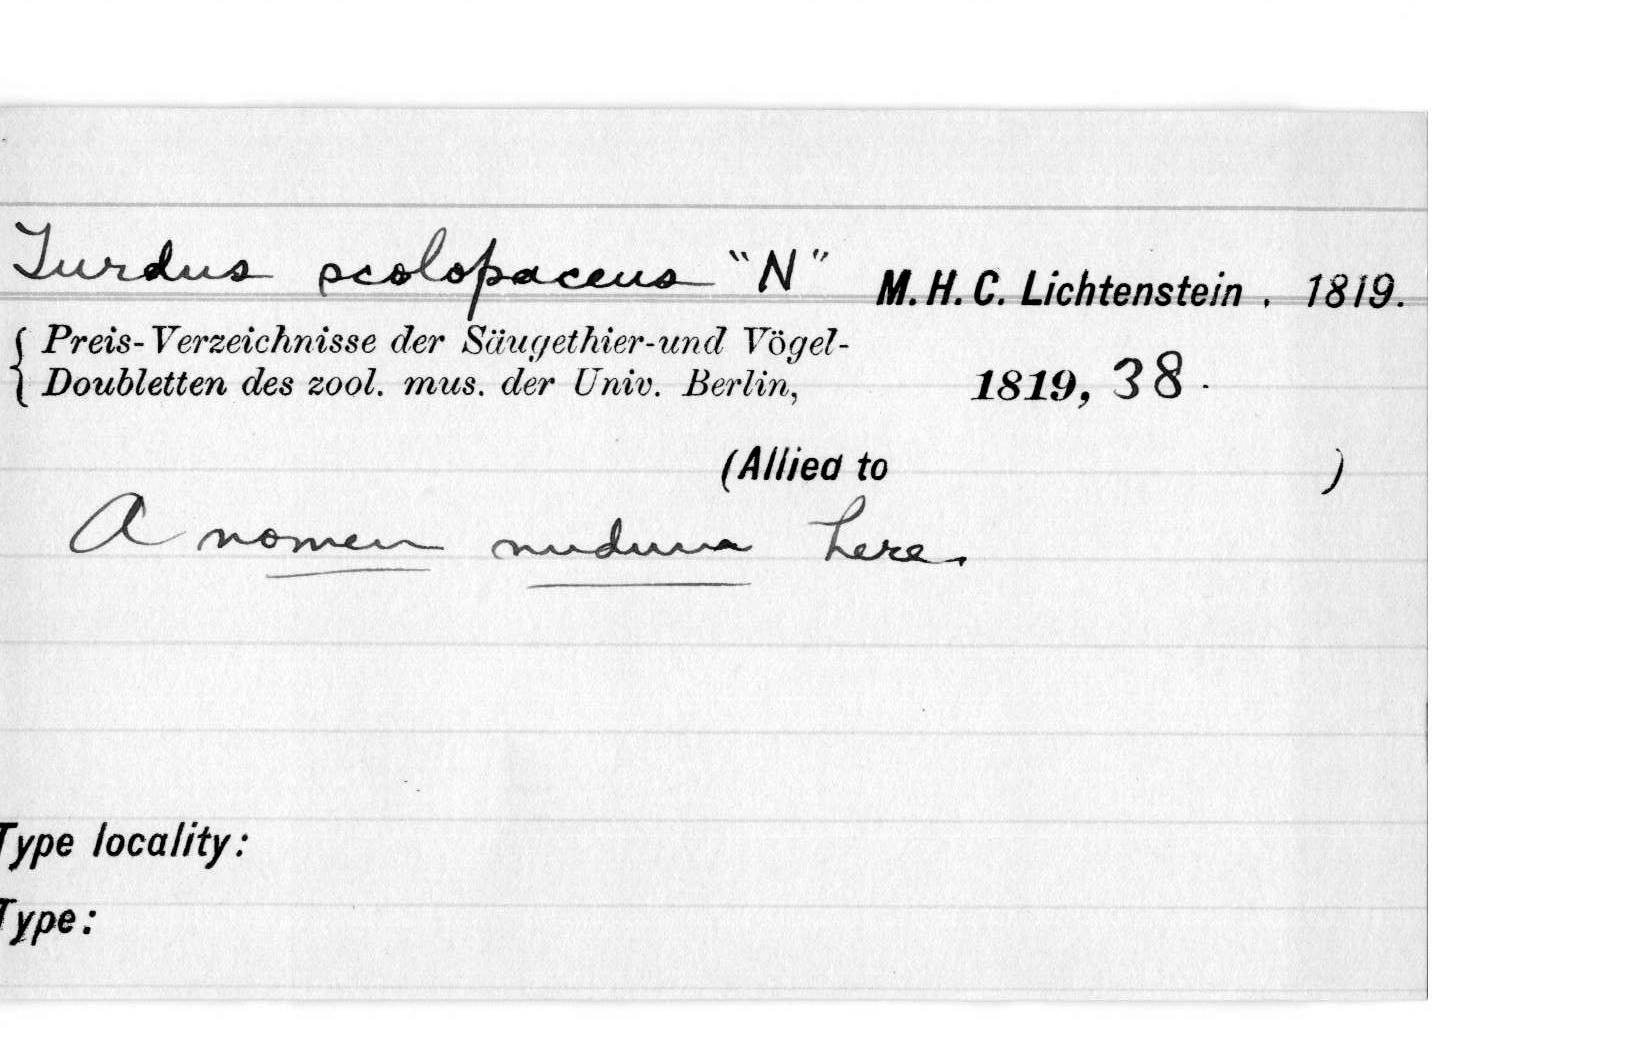 Turdus scolopaceus "N" M. H. C. Lichtenstein . 1819.
Preis-Verzeichnisse der Säugethier-und Vögel-
Doubletten des zool. mus. der Univ. Berlin, 1819, 38.
(Allied to )
A nomen nudum here.
Type locality:
Type: